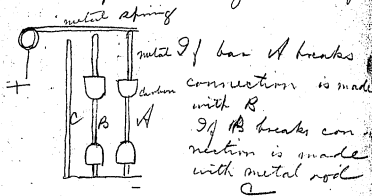 metal spring
metal If bar A breaks
carbon connection is made
with B.
+ C B A
If B breaks con
nection is made
with metal rod
C
-